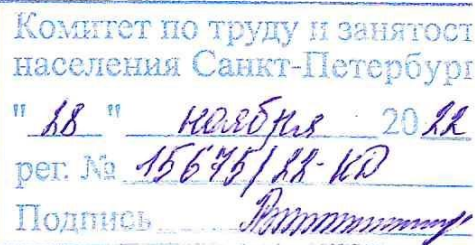 Комитет по труду и занятост
населения Санкт-Петербург
" 28 " ноября 2022
рег. № 15675/22-КД
Подпись